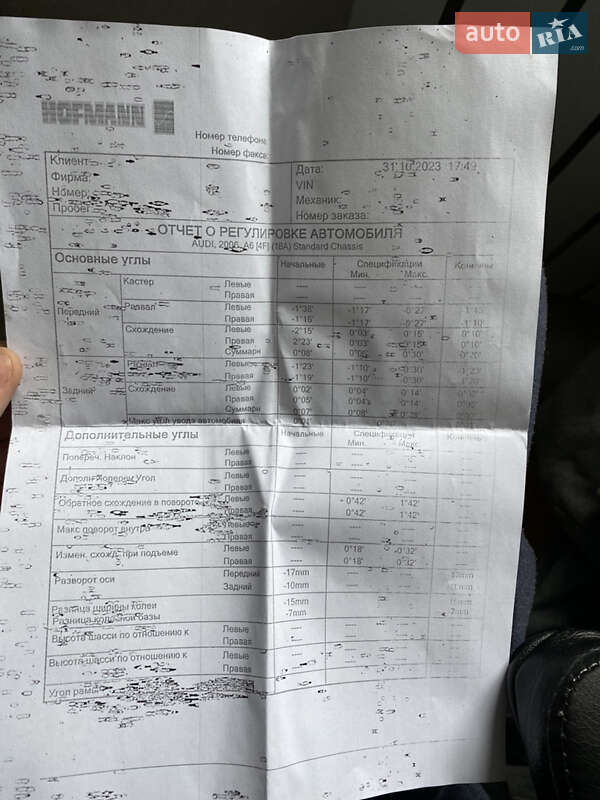 auto RIA .com
HOFMANN
Номер телефона
Номер факса:
Клиент: Дата: 31.10.2023 17:49
Фирма: VIN
Номер: Механик:
Пробег Номер заказа:
ОТЧЕТ О РЕГУЛИРОВКЕ АВТОМОБИЛЯ
AUDI, 2006, A6 [4F] (18A) Standard Chassis
Основные углы Начальные Спецификации
Мин. Макс.
Кастер Левые ---- ---- ----
Правая ---- ---- ----
Передний Развал Левые -1°38' -1°17' -0°27'
Правая -1°16' -1°17' -0°27' -1°10'
Схождение Левые -2°15' 0°03' 0°15' 0°10'
Правая 2°23' 0°03' 0°15' 0°10'
Суммарн 0°08' 0°30' 0°20'
Левые -1°23' -1°10' -1°23'
Правая -1°19' -1°10' -0°30'
Задний Схождение Левые 0°02' 0°04' 0°14'
Правая 0°05' 0°04' 0°14'
Суммарн 0°07' 0°08'
Макс угол увода автомобиля
Дополнительные углы Начальные Спецификации
Мин. Макс.
Попереч. Наклон Левые ---- ---- ----
Правая ---- ---- ----
Угол Левые ---- ---- ----
Правая ---- ---- ----
Обратное схождение в поворот Левые ---- 0°42' 1°42'
Правая ---- 0°42' 1°42'
Макс поворот внутр Левые ---- ---- ----
Правая ---- ---- ----
Измен. схожд. при подъеме Левые ---- 0°18' -0°32'
Правая ---- 0°18' 0°32'
Разворот оси Передний -17mm ---- ----
Задний -10mm ---- ----
Разница ширины колеи -15mm ---- ----
Разница колесной базы -7mm ---- ----
Высота шасси по отношению к Левые ---- ---- ----
Правая ---- ---- ----
Высота шасси по отношению к Левые ---- ---- ----
Правая ---- ---- ----
Угол рамы